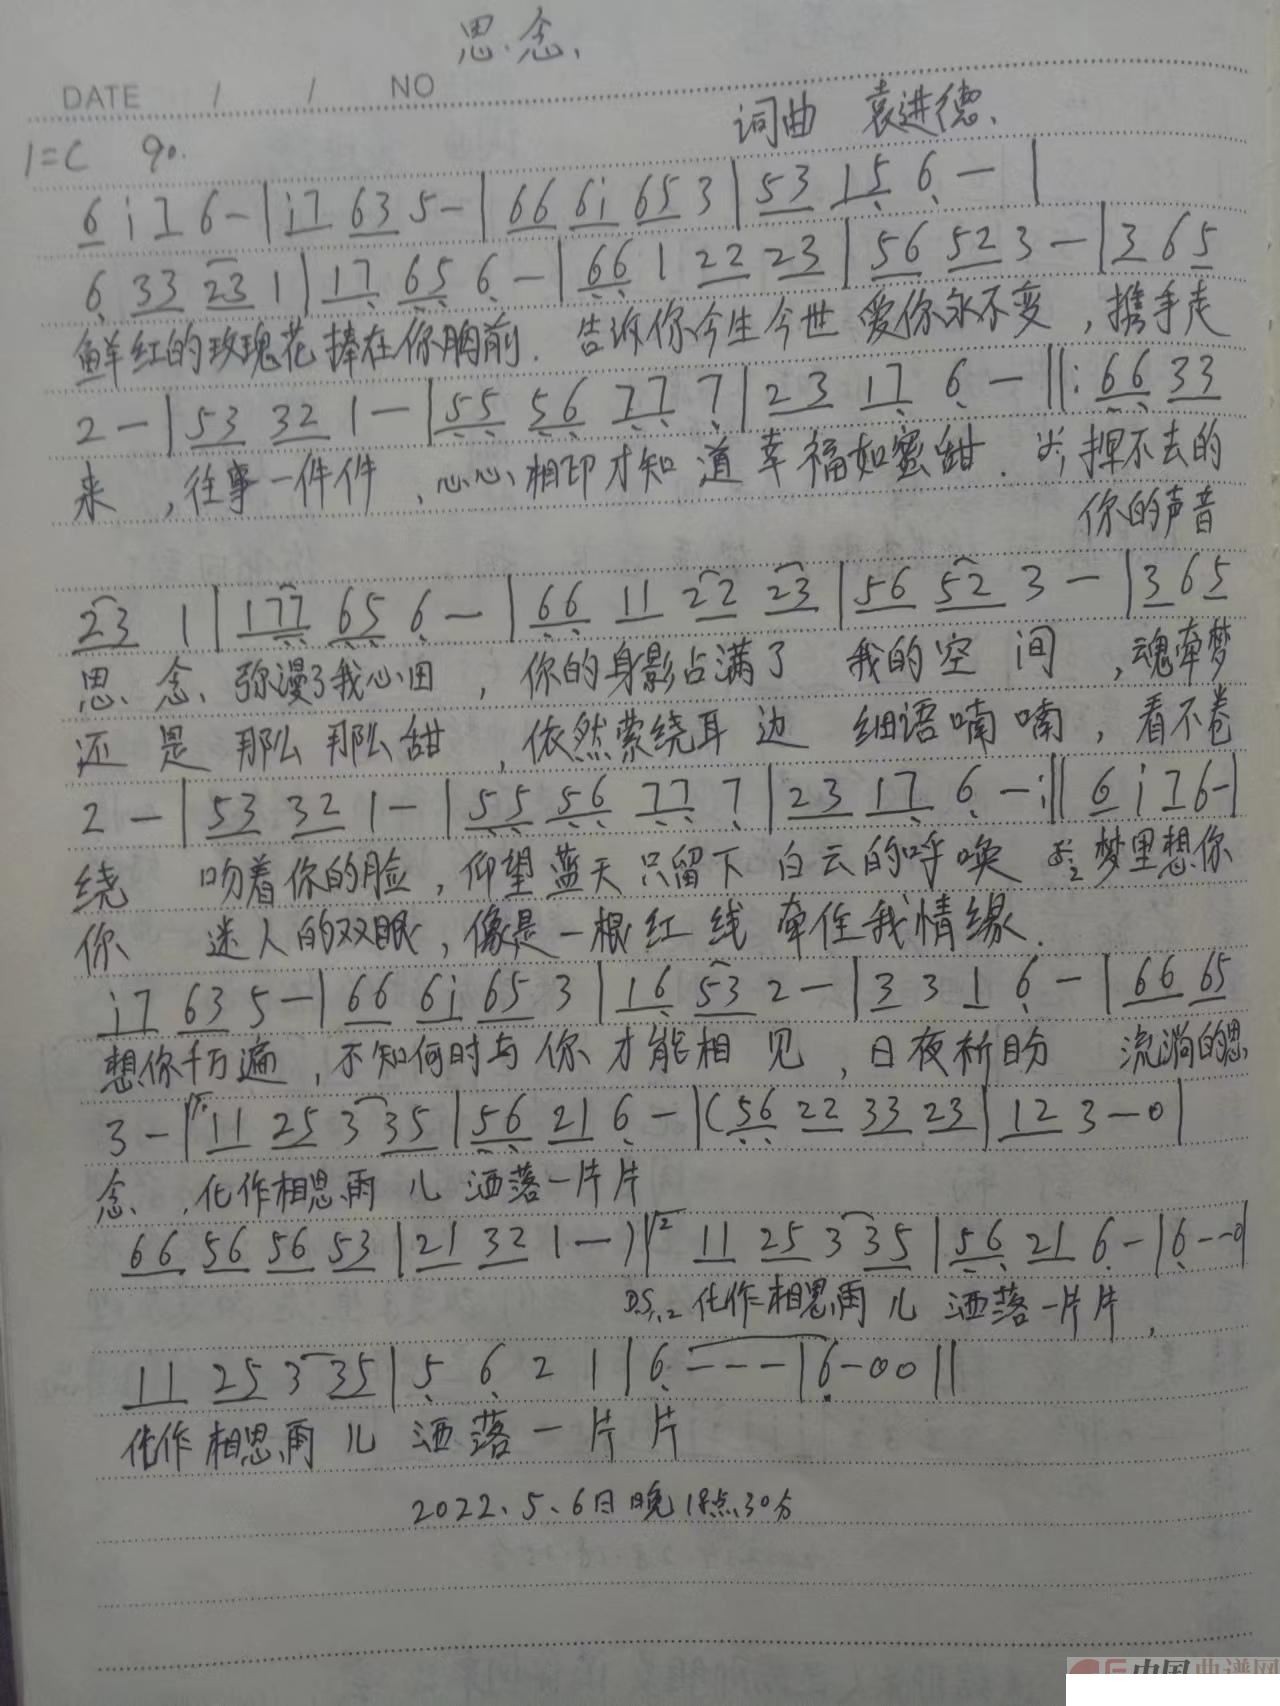 思念
DATE / / NO
词曲 袁进德
1=C 90.
6 i 7 6 - | i7 63 5 - | 66 6i 65 3 | 53 15 6 - |
6 33 23 1 | 17 65 6 - | 66 1 22 23 | 56 52 3 - | 3 6 5
鲜红的玫瑰花捧在你胸前. 告诉你今生今世 爱你永不变,携手走
2 - | 53 32 1 - | 55 56 77 7 | 23 17 6 - ||: 66 33
来 ,往事一件件 ,心心相印才知 道 幸福如蜜甜. 挥不去的
你的声音
23 1 | 177 65 6 - | 66 11 22 23 | 56 52 3 - | 3 6 5
思念、弥漫了我心田 ,你的身影占满了 我的空 间 ,魂牵梦
还 是 那么 那么 甜 ,依然萦绕耳 边 细语喃喃,看不倦
2 - | 53 32 1 - | 55 56 77 7 | 23 17 6 - :|| 6 i 7 6 - |
绕 吻着你的脸,仰望蓝天只留下 白云的呼唤 梦里想你
你 迷人的双眼,像是一根红 线 牵住我情缘.
i7 63 5 - | 66 6i 65 3 | 16 53 2 - | 3 3 1 6 - | 66 65
想你千万遍 ,不知何时与你 才能相 见 ,日夜祈盼 流淌的思
3 - | 1. 11 25 3 35 | 56 21 6 - | (56 22 33 23 | 12 3 - 0 |
念 ,化作相思雨 儿 洒落一片片
66 56 56 53 | 21 32 1 - ) | 2 11 25 3 35 | 56 21 6 - | 6 - - 0 |
D.S.1.2 化作相思雨 儿 洒落一片片,
11 25 3 35 | 5 6 2 1 | 6 - - - | 6 - 0 0 ||
化作相思雨 儿 洒 落 一 片 片
2022、5、6日晚18点30分
中国曲谱网